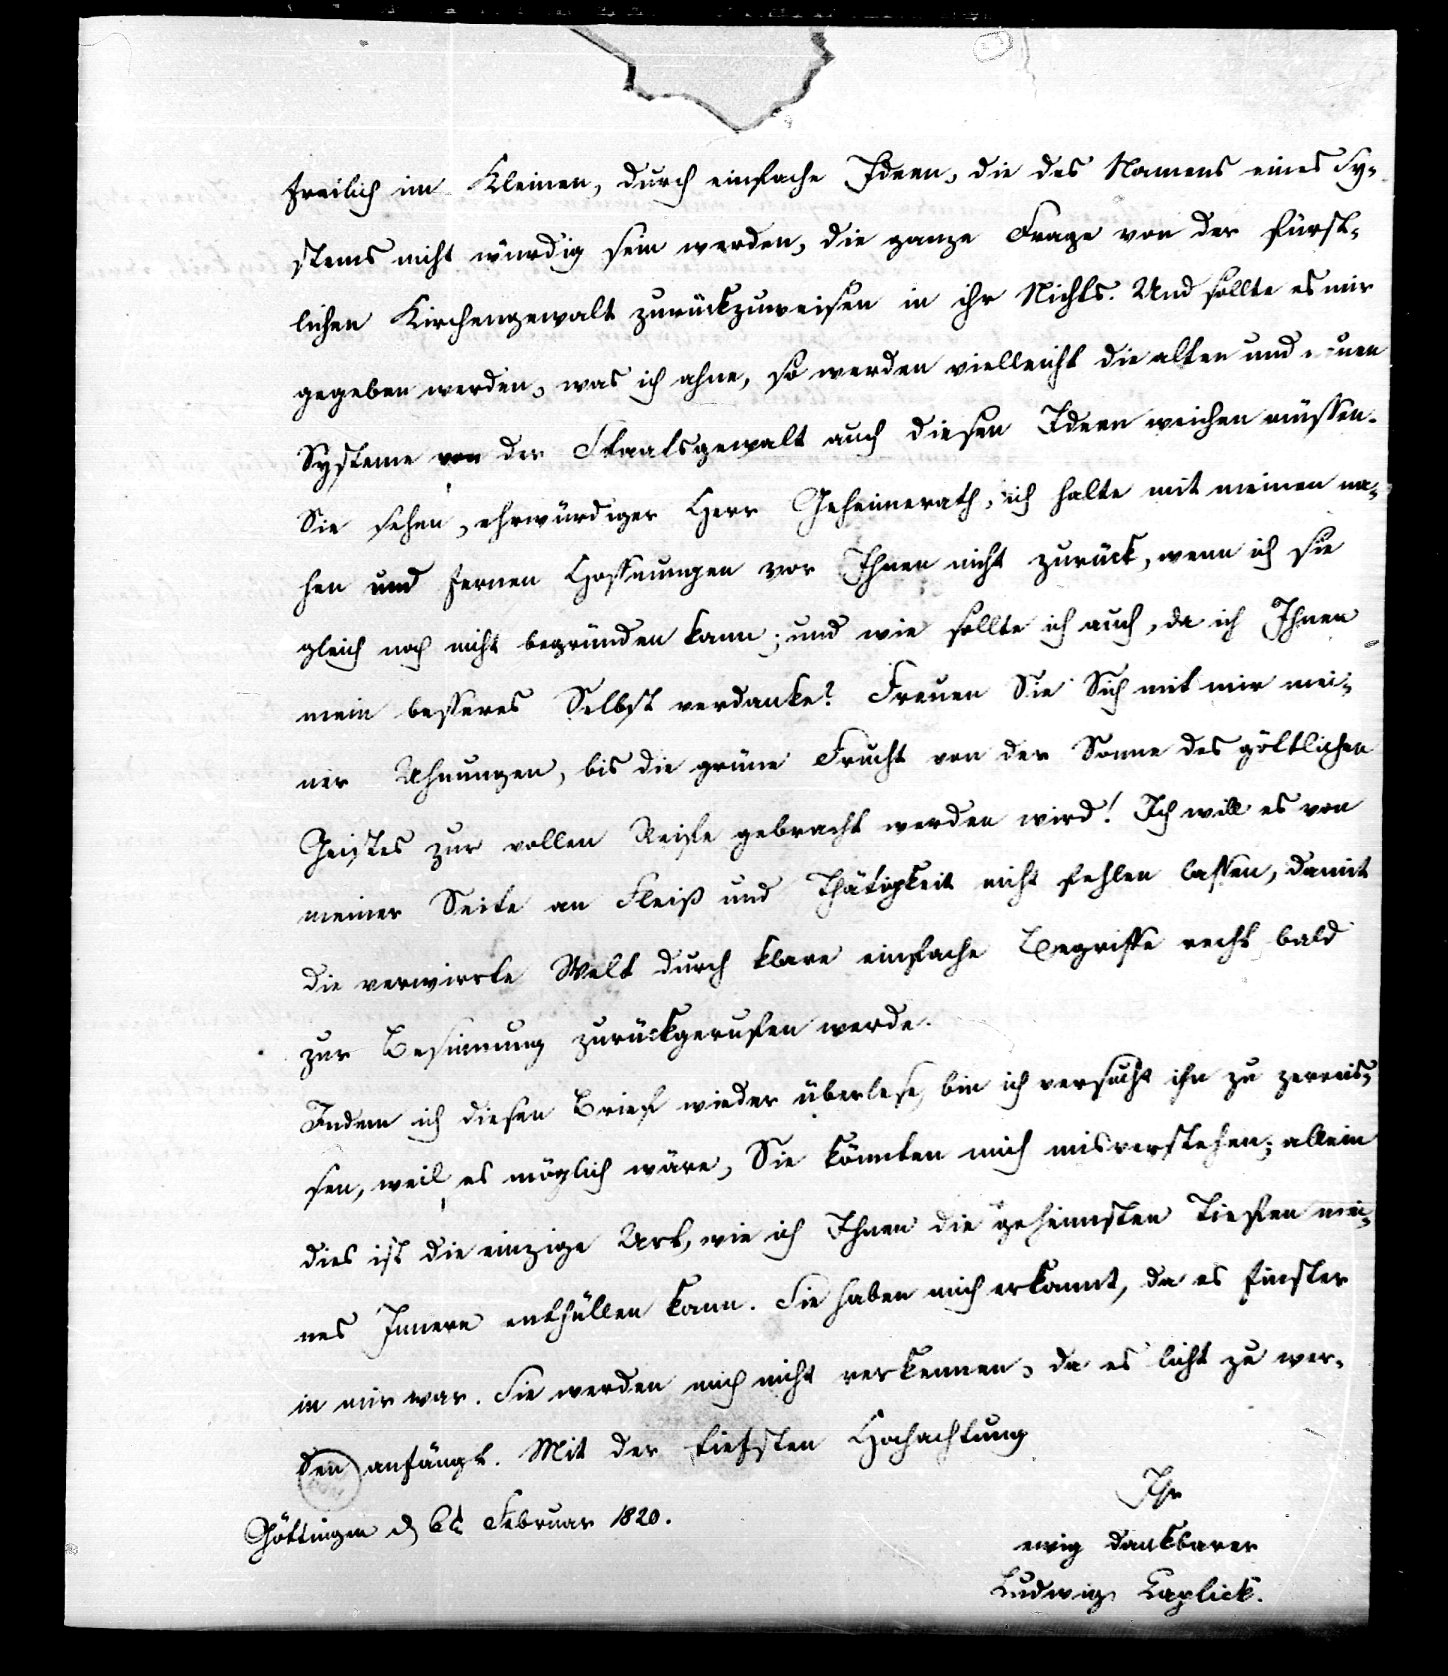 freilich im Kleinen, durch einfache Ideen, die des Namens eines Sy-
stems nicht würdig sein werden, die ganze Frage von der fürst-
lichen Kirchengewalt zurückzuweisen in ihr Nichts. Und sollte es mir
gegeben werden, was ich ahne, so werden vielleicht die alten und neuen
Systeme von der Staatsgewalt auch diesen Ideen weichen müssen.
Sie sehen, ehrwürdiger Herr Geheimerath, ich halte mit meinen na-
hen und fernen Hoffnungen vor Ihnen nicht zurück, wenn ich sie
gleich noch nicht begründen kann; und wie sollte ich auch, da ich Ihnen
mein besseres Selbst verdanke? Freuen Sie Sich mit mir mei-
ner Ahnungen, bis die grüne Frucht von der Sonne des göttlichen
Geistes zur vollen Reife gebracht werden wird! Ich will es von
meiner Seite an Fleiß und Thätigkeit nicht fehlen lassen, damit
die verwirrte Welt durch klare einfache Begriffe recht bald
zur Besinnung zurückgerufen werde.
Indem ich diesen Brief wieder überlese, bin ich versucht ihn zu zerreis-
sen, weil es möglich wäre, Sie könnten mich misverstehen; allein
dies ist die einzige Art, wie ich Ihnen die geheimsten Tiefen mei-
nes Innern enthüllen kann. Sie haben mich erkannt, da es finster
in mir war. Sie werden mich nicht verkennen, da es licht zu wer-
den anfängt. Mit der tiefsten Hochachtung
Ihr
Göttingen d 6t Februar 1820.
ewig dankbarer
Ludwig